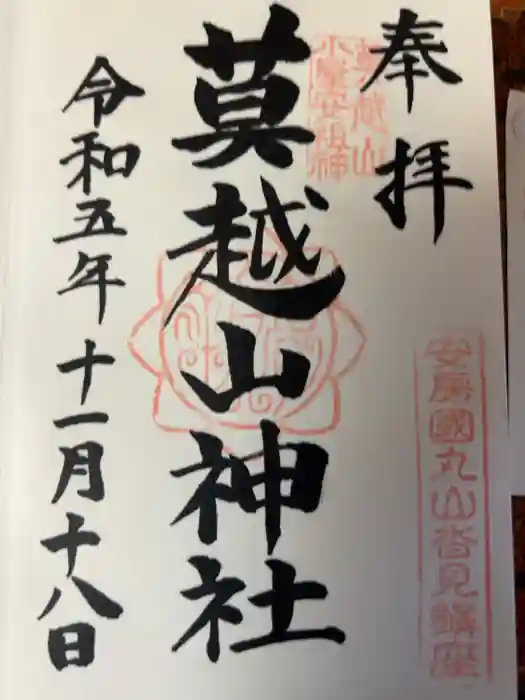 奉拝
莫越山
小屋安祖神
莫越山神社
安房國丸山沓見鎮座
令和五年十一月十八日